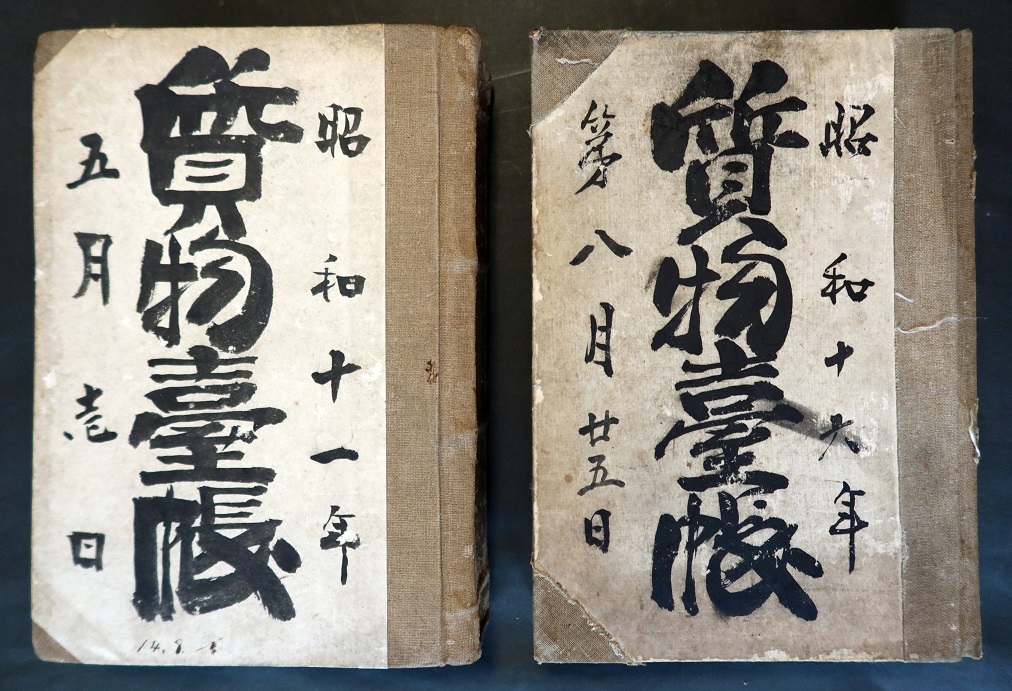 昭和十一年
質物臺帳
五月壱日
昭和十六年
質物臺帳
第八月廿五日